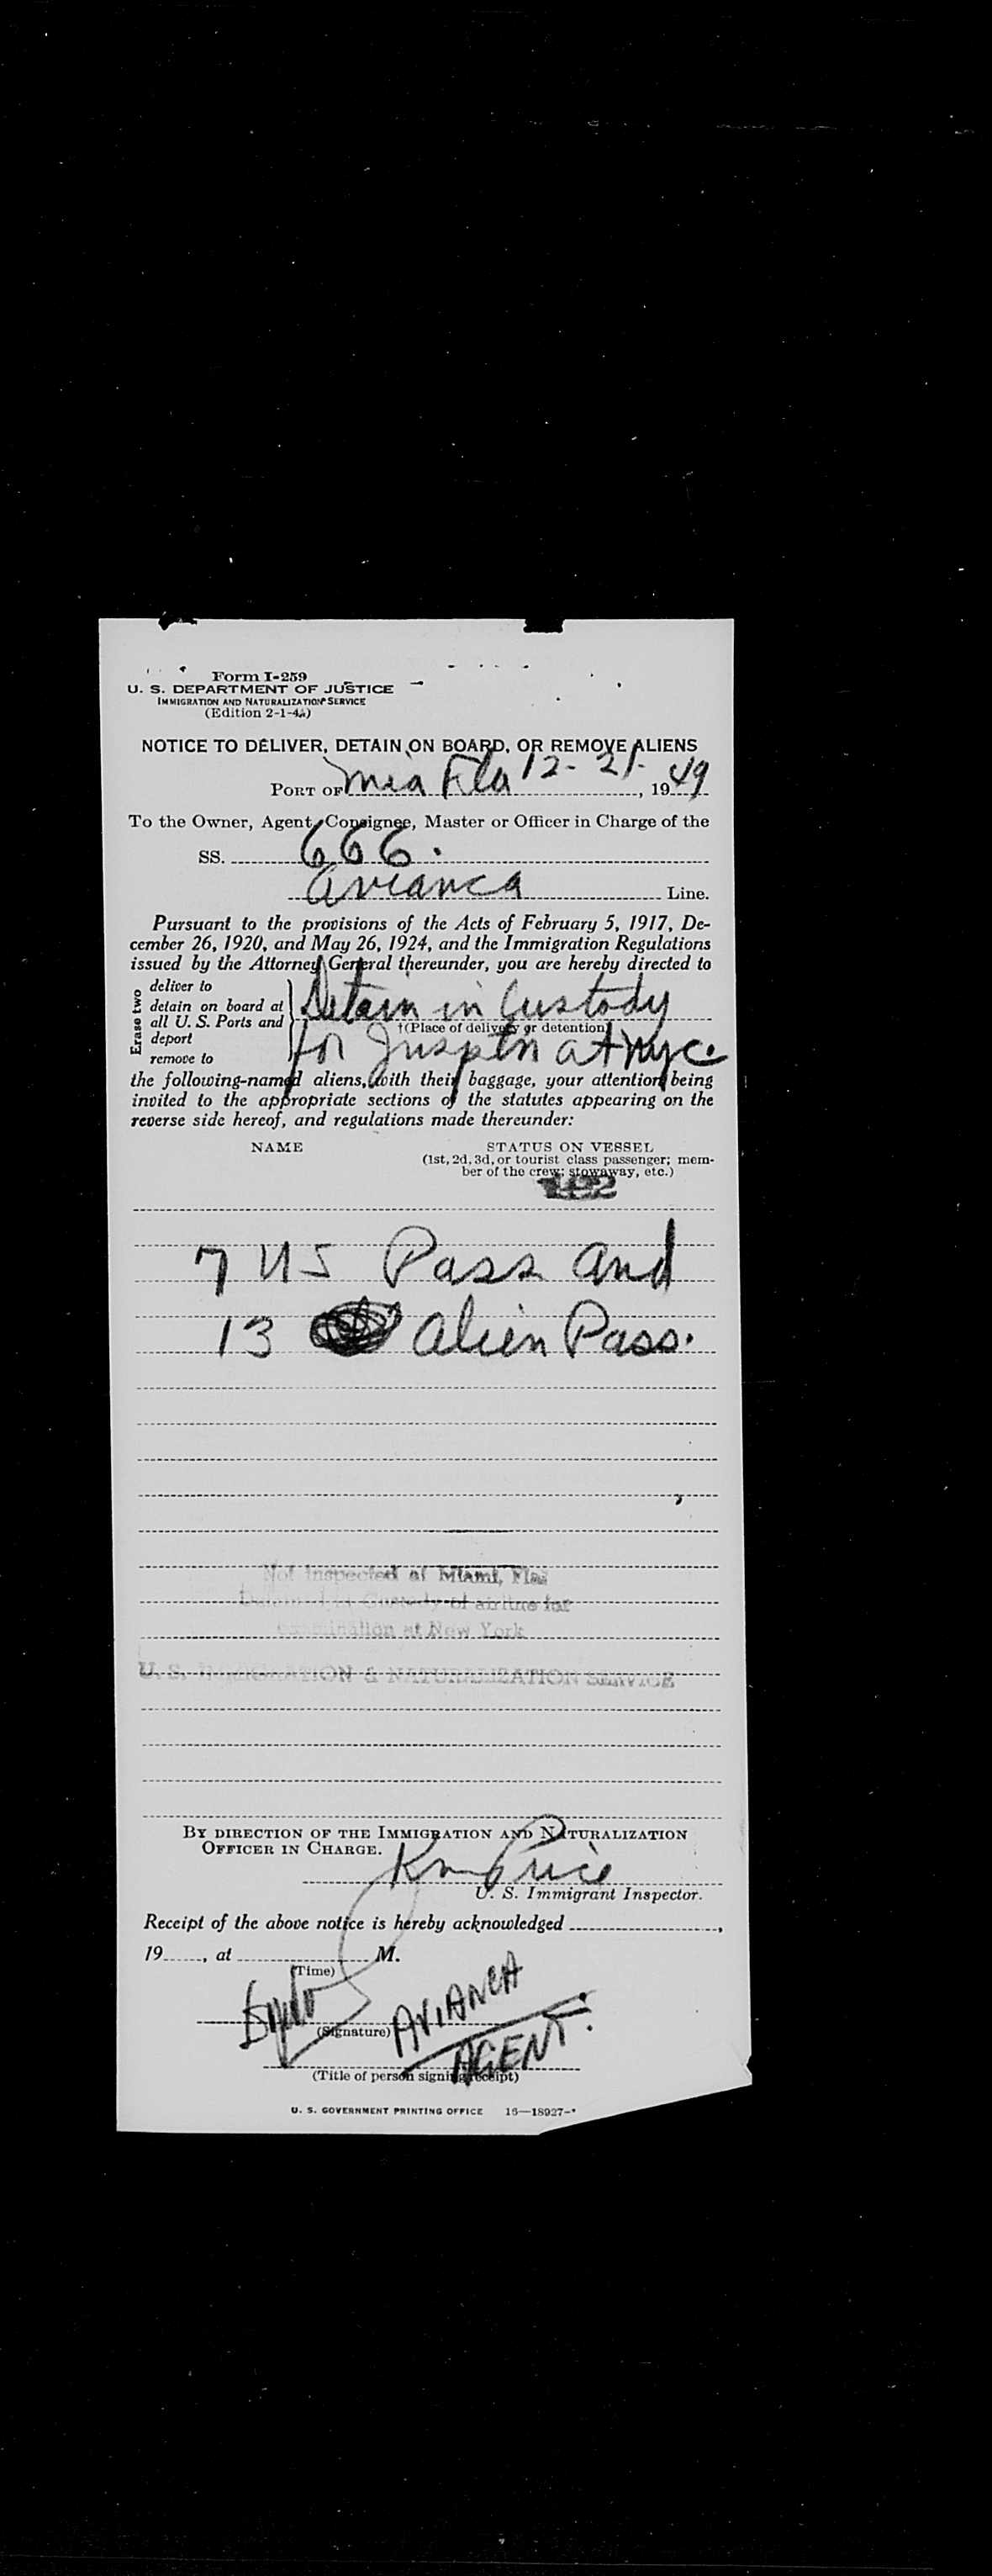 Form I-259
U. S. DEPARTMENT OF JUSTICE
IMMIGRATION AND NATURALIZATION SERVICE
(Edition 2-1-4)
NOTICE TO DELIVER, DETAIN ON BOARD, OR REMOVE ALIENS
PORT OF Mia Fla 12-21-, 1949
To the Owner, Agent, Consignee, Master or Officer in Charge of the
SS. 666.
Avianca Line.
Pursuant to the provisions of the Acts of February 5, 1917, De-
cember 26, 1920, and May 26, 1924, and the Immigration Regulations
issued by the Attorney General thereunder, you are hereby directed to
Erase two
deliver to
detain on board at
all U. S. Ports and
deport
remove to
Detain in Custody
†(Place of delivery or detention)
for Insptn at NYC.
the following-named aliens, with their baggage, your attention being
invited to the appropriate sections of the statutes appearing on the
reverse side hereof, and regulations made thereunder:
NAME STATUS ON VESSEL
(1st, 2d, 3d, or tourist class passenger; mem-
ber of the crew; stowaway, etc.)
7 US Pass and
13 Alien Pass.
Not Inspected at Miami, Fla
Custody of airline for
examination at New York
U. S. IMMIGRATION & NATURALIZATION SERVICE
BY DIRECTION OF THE IMMIGRATION AND NATURALIZATION
OFFICER IN CHARGE.
Km Price
U. S. Immigrant Inspector.
Receipt of the above notice is hereby acknowledged ,
19 , at M.
(Time)
AVIANCA
(Signature)
AGENT.
(Title of person signing receipt)
U. S. GOVERNMENT PRINTING OFFICE 16—18927-*